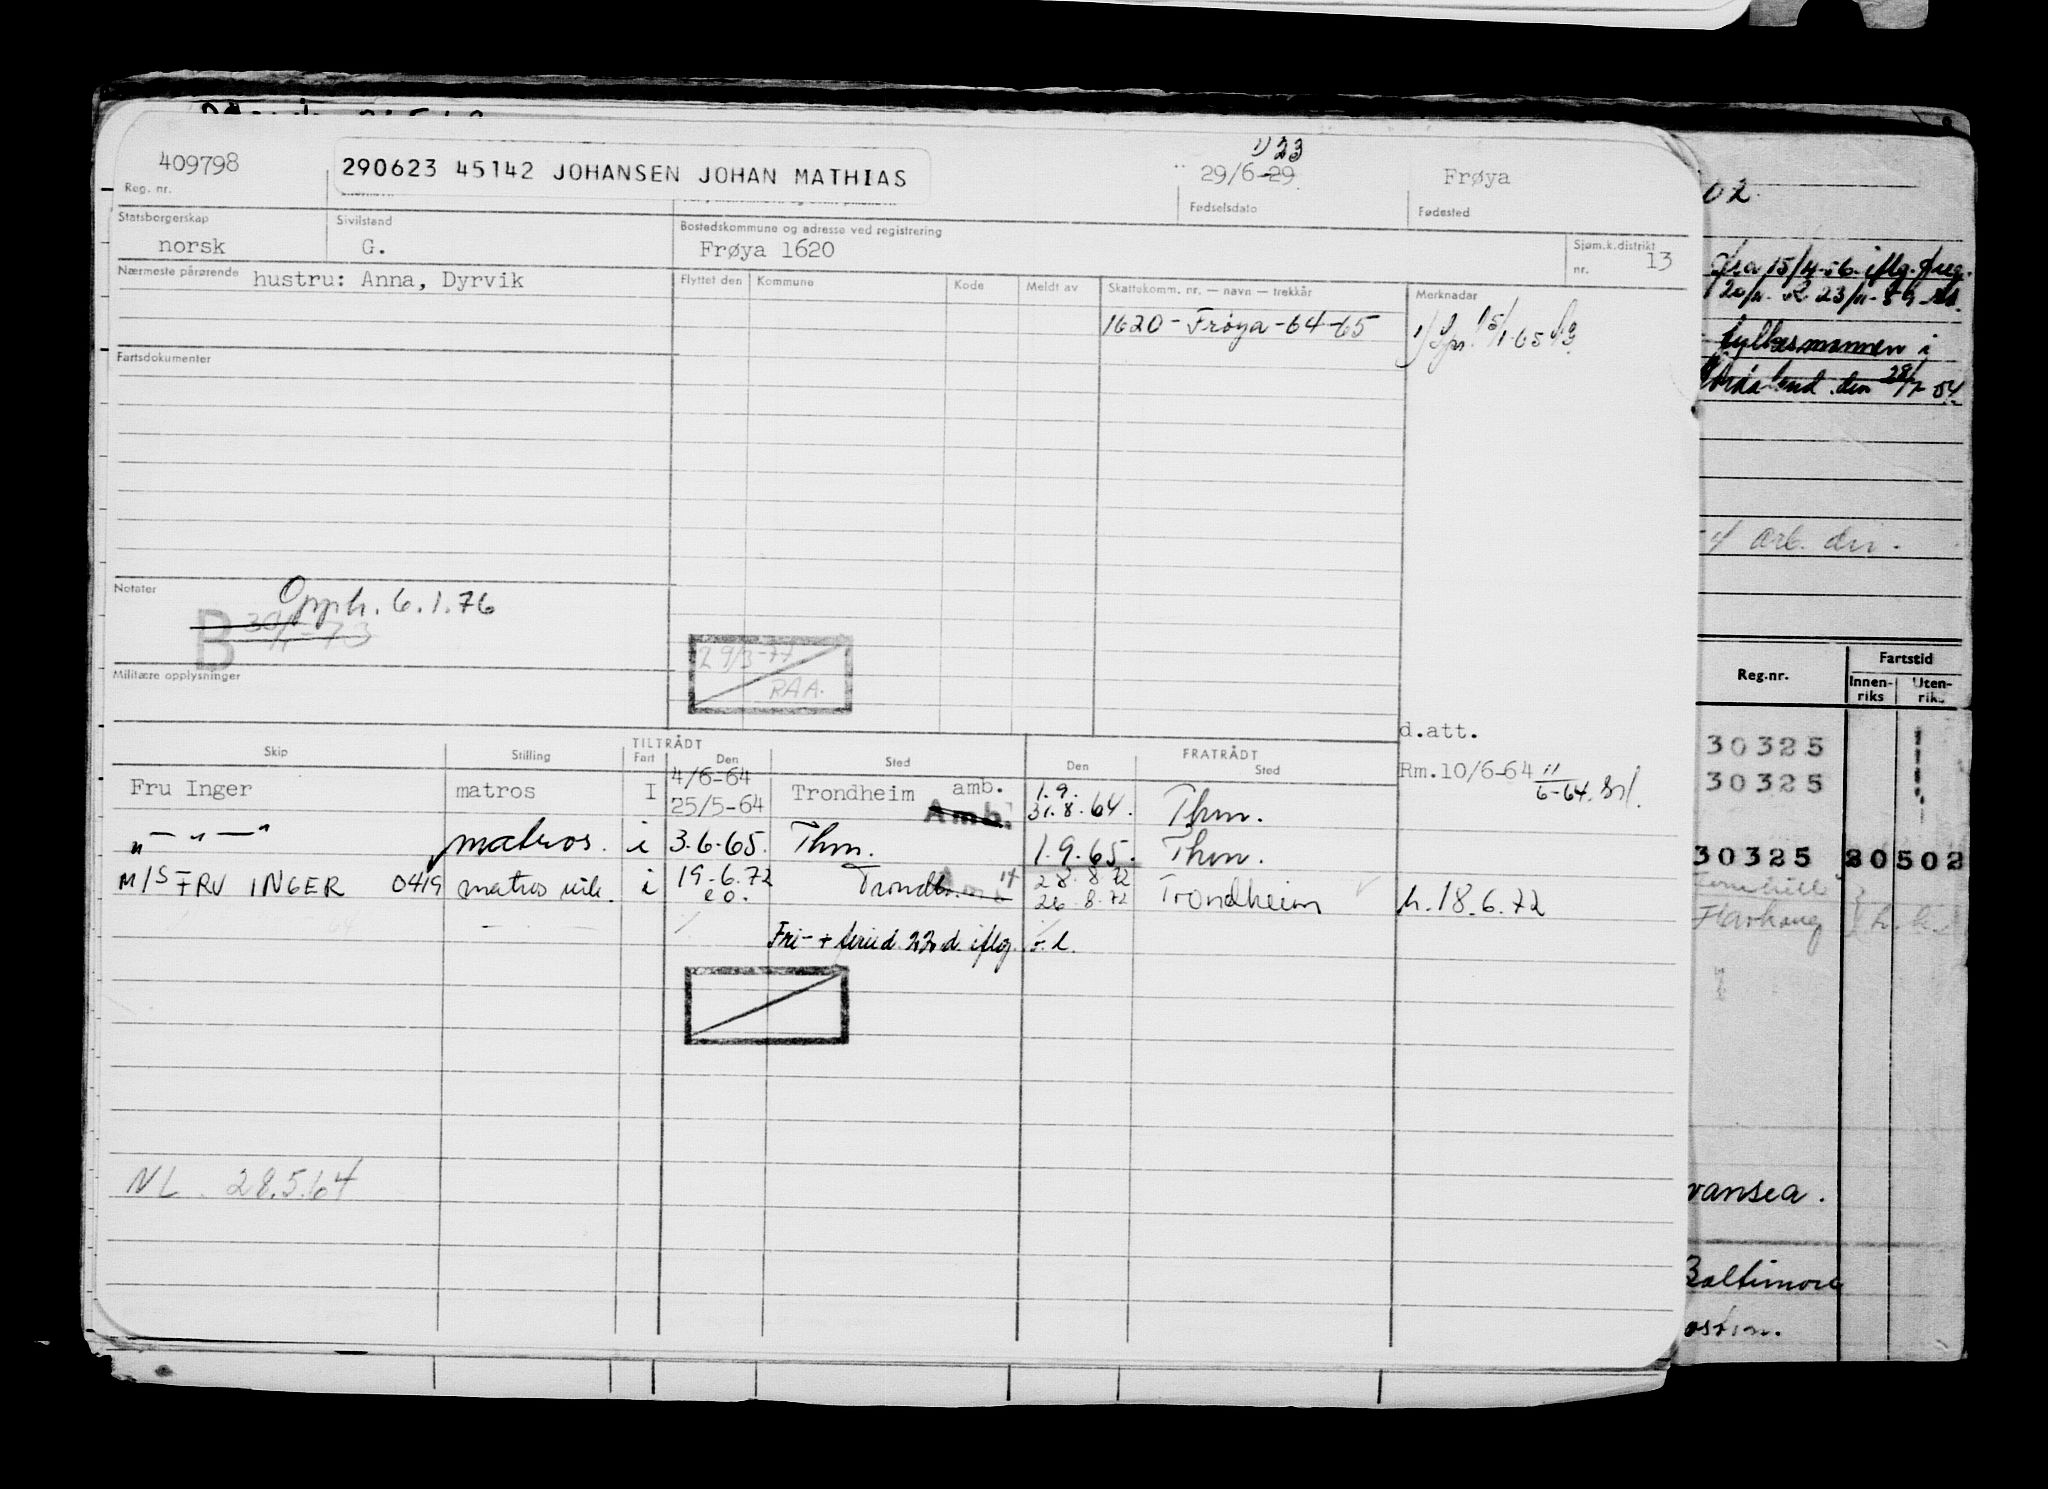 409798
290623 45142 JOHANSEN JOHAN MATHIAS
1) 23
29/6-29
Frøya
Reg. nr.
Fødselsdato
Fødested
Statsborgerskap
Sivilstand
Bostedskommune og adresse ved registrering
Sjøm.k.distrikt
norsk
G.
Frøya 1620
nr. 13
Nærmeste pårørende hustru: Anna, Dyrvik
Flyttet den
Kommune
Kode
Meldt av
Skattekomm. nr. — navn — trekkår
Merknader
1620 - Frøya - 64-65
Fartsdokumenter
Notater
Opph. 6.1.76
B
29/3-77
RAA.
Militære opplysninger
d.att.
Skip
Stilling
TILTRÅDT
Fart
Den
Sted
FRATRÅDT
Den
Sted
Rm.10/6-64 11/6-64.
Fru Inger
matros
I
4/6-64
25/5-64
Trondheim amb.
Amb.
1.9.
31.8.64.
Thm.
" — " — "
matros.
i
3.6.65.
Thm.
1.9.65.
Thm.
M/S FRU INGER 0419
matros
i
19.6.72
Trondh.
28.8.72
26.8.72
Trondheim
h.18.6.72
NL. 28.5.64
02.
fra 15/4-56 iflg.
fylkesmannen i
den 28/7 54
arb.
Reg.nr.
Fartstid
Innen-
riks
Uten-
riks
30325
30325
30325 20502
Baltimore